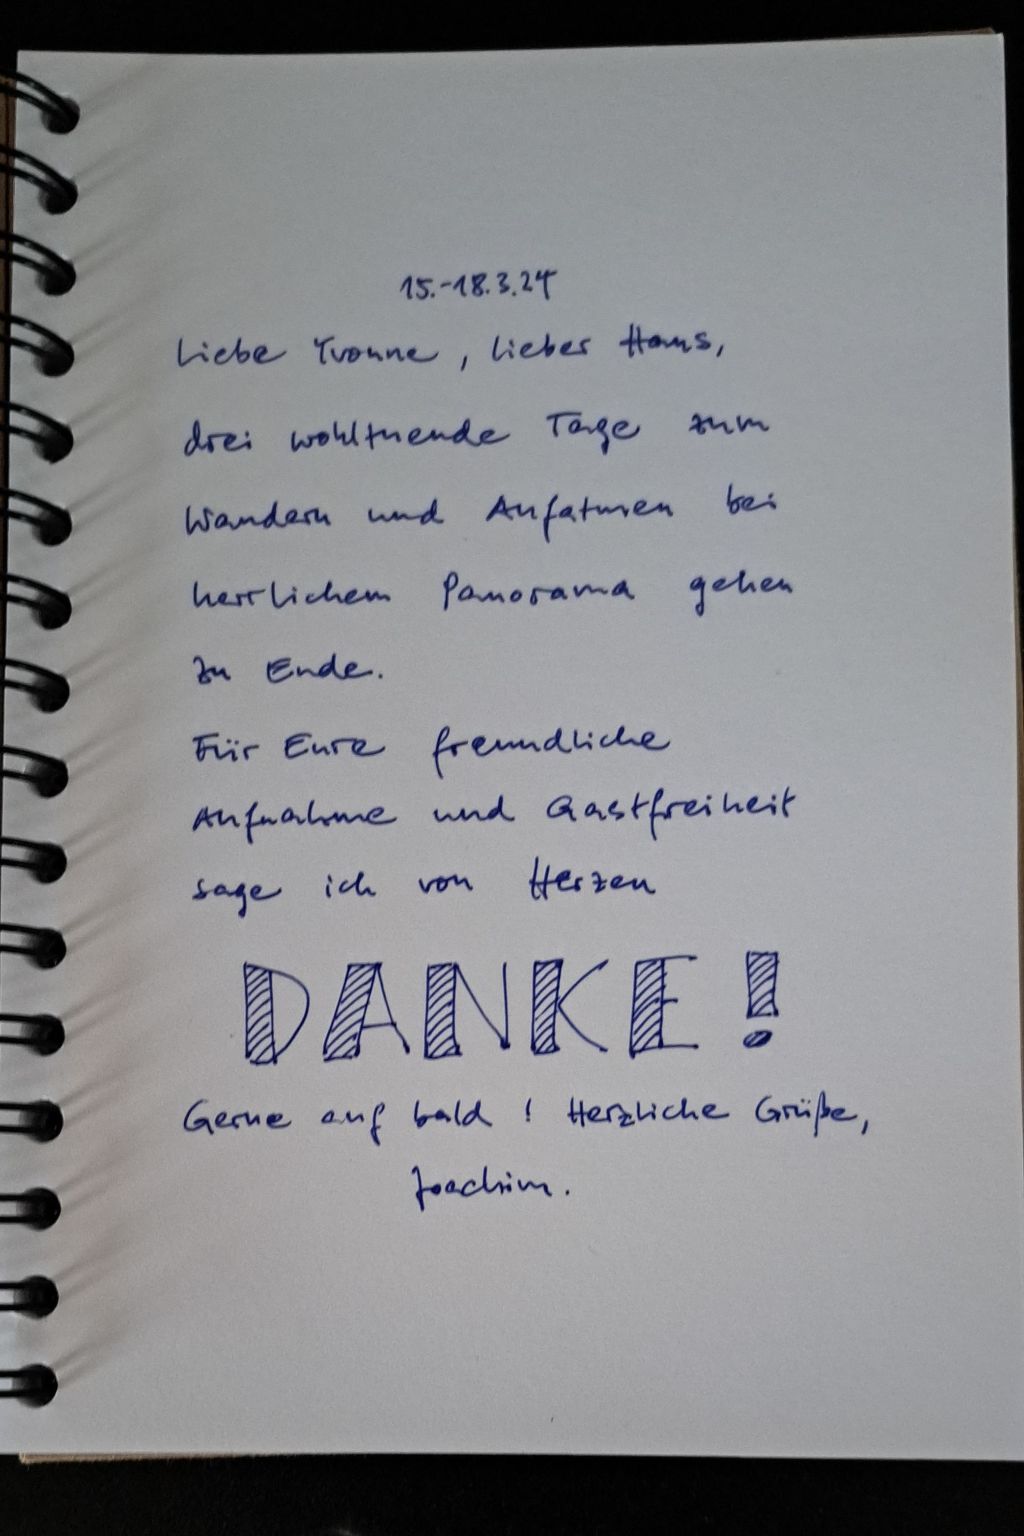 15.-18.3.24
Liebe Yvonne, lieber Hans,
drei wohltuende Tage zum
Wandern und Aufatmen bei
herrlichem Panorama gehen
zu Ende.
Für Eure freundliche
Aufnahme und Gastfreiheit
sage ich von Herzen
DANKE!
Gerne auf bald! Herzliche Grüße,
Joachim.